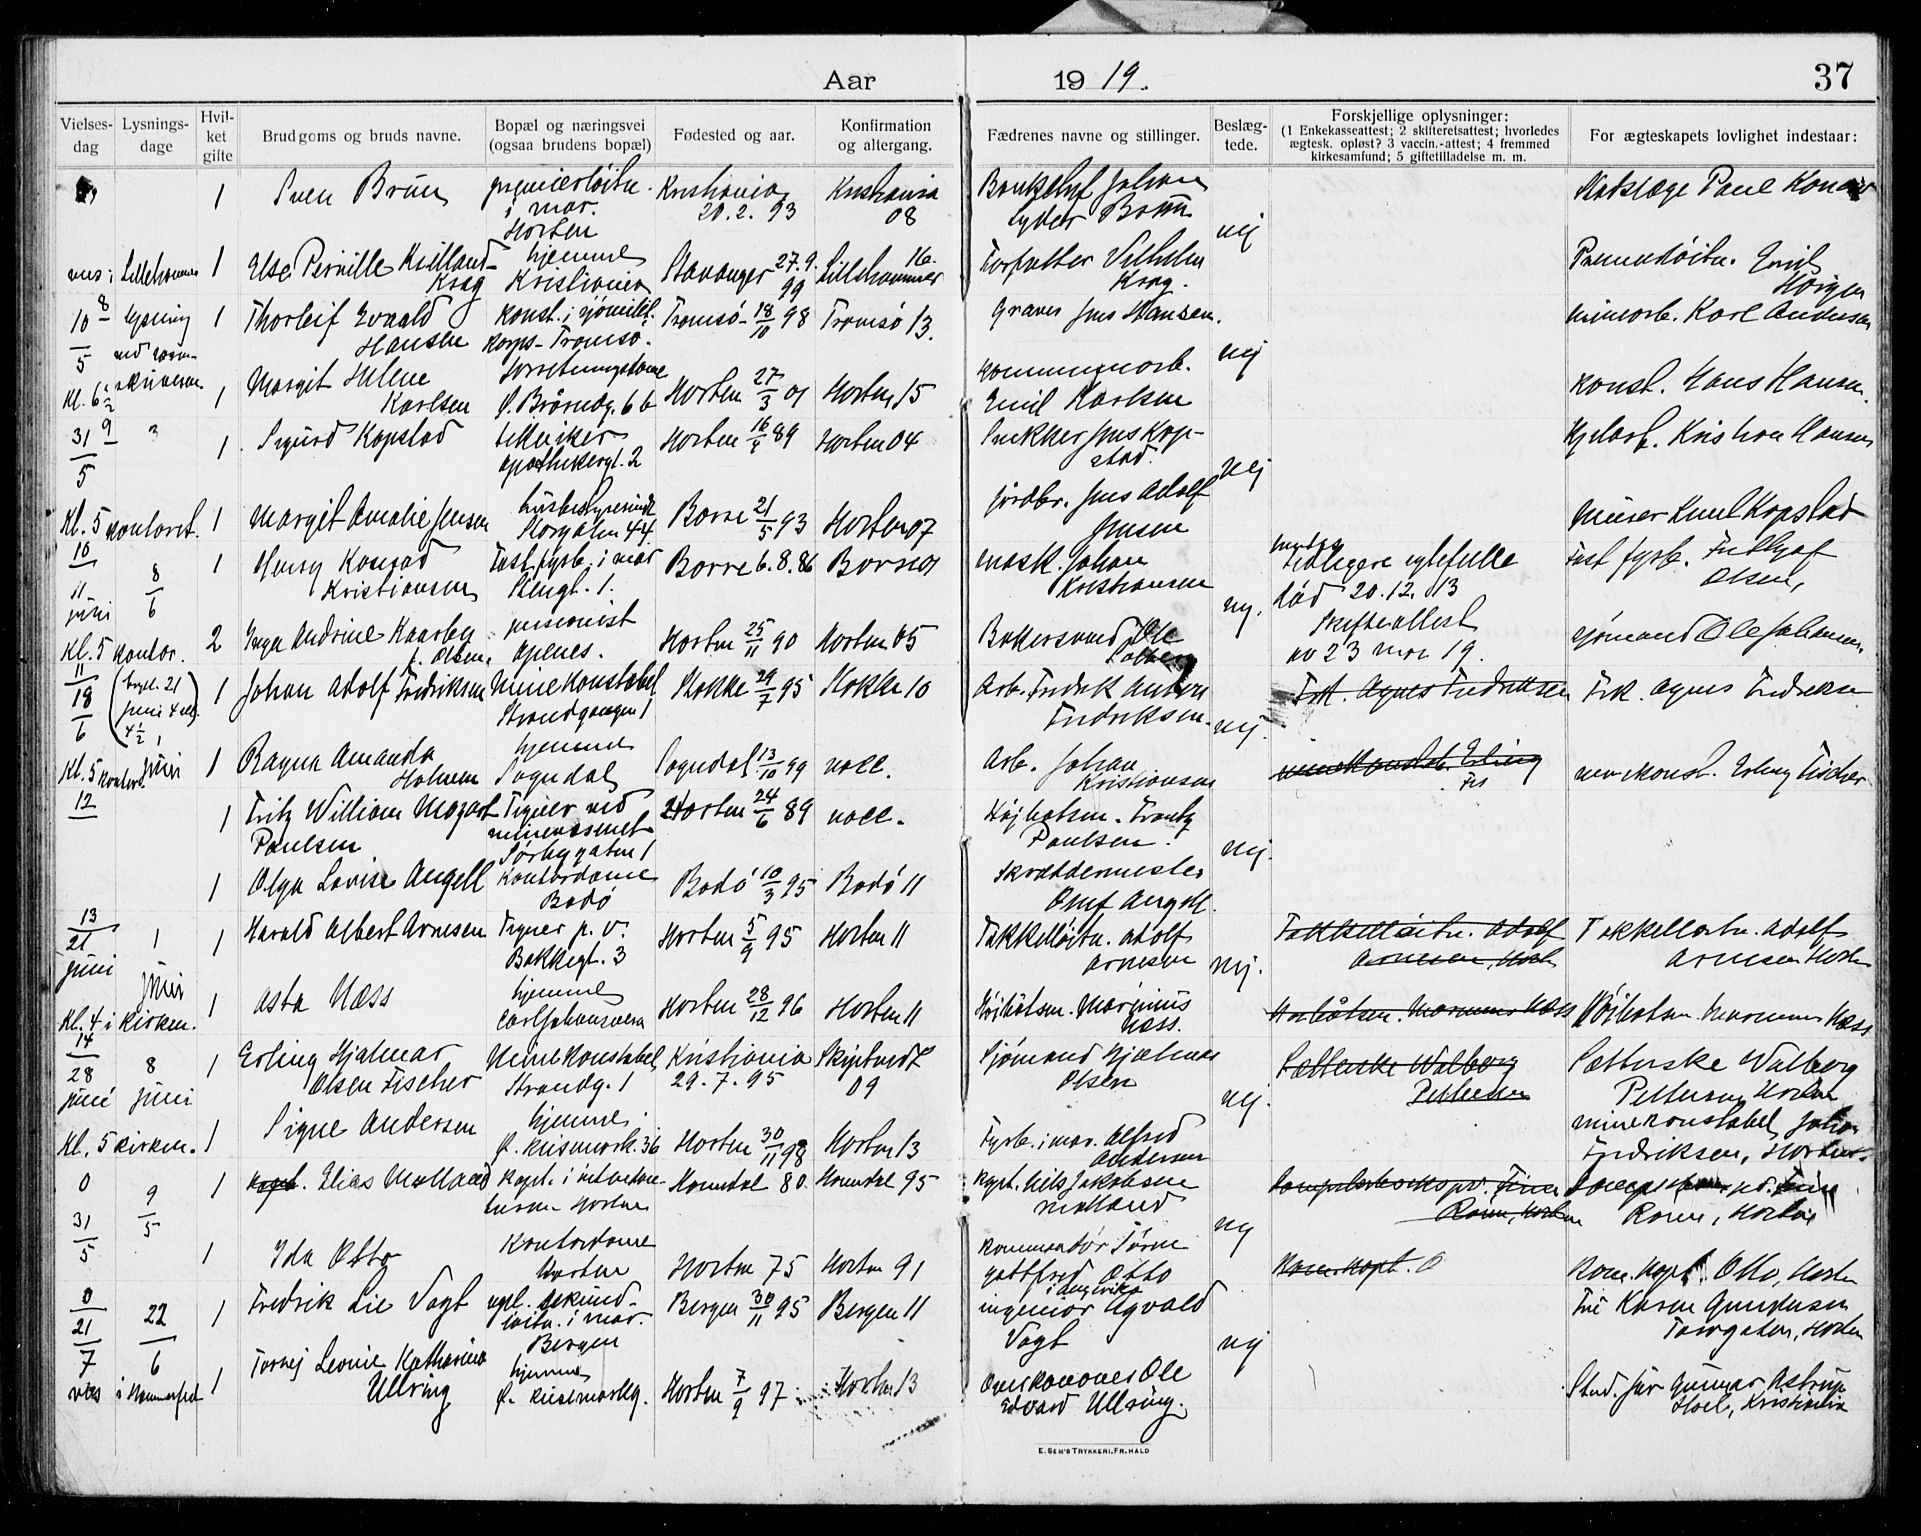 Aar 1919. 37
Vielses-dag Lysnings-dage Hvil-ket gifte Brudgoms og bruds navne. Bopæl og næringsvei (ogsaa brudens bopæl) Fødested og aar. Konfirmation og altergang. Fædrenes navne og stillinger. Beslæg-tede. Forskjellige oplysninger: (1 Enkekasseattest; 2 skifteretsattest; hvorledes ægtesk. opløst? 3 vaccin.-attest; 4 fremmed kirkesamfund; 5 giftetilladelse m. m. For ægteskapets lovlighet indestaar:
1 Sven Brun premierløitn. i mar. Horten Kristiania 20.2.93 Kristiania 08 Johan Lyder Brun nej Paul
i Lillehammer 1 Else Pernille Kielland-Krag hjemme Kristiania Stavanger 27.9.99 Lillehammer 16. Forfatter Vilhelm Krag. Emil
8 10/5 lysning 1 Thorleif Evald Hansen konst. i sjømilit. korps - Tromsø. Tromsø 18/10 98 Tromsø 13. Graver Jens Hansen. nej minearb. Karl Andersen
Kl. 6 1/2 1 Margit Helene Karlsen Ø. Brårudg. 66 Horten 27/3 01 Horten 15 kommunearb. Emil Karlsen konst. Hans Hansen.
9 31/5 3 1 Sigurd Kopstad tekniker apothekergt. 2 Horten 16/9 89 Horten 04 Snekker Jens Kopstad. nej Kristian Hansen
Kl. 5 kontoret. 1 Margit Amalie Jensen husbestyrerinde Storgaten 44. Borre 21/5 93 Horten 07 jordbr. Jens Adolf Jensen murer Knut Kopstad
10 11 juni 8/6 1 Henry Konrad Kristiansen Fast fyrb. i mar Stengt. 1. Borre 6.8.86 Borre 01 mask. Johan Kristiansen nej. tidligere egtefelle død 20.12.13 Skifteattest av 23 mai 19. Fast fyrb. Fridtjof Olsen,
Kl. 5 kontor. 2 Inga Andrine Kaarby f. Olsen. pensionist Apenes. Horten 25/11 90 Horten 05 Bøkersvend Ole sjømand Ole Johansen.
11 18/6 (bryl. 21 juni 4 1/2) 1 Johan Adolf Fredriksen Minekonstabel Strandgangen 1 Stokke 29/7 95 Stokke 10 Arb. Fredrik Anton Fredriksen. nej. Frk. Agnes Fredriksen Frk. Agnes Fredriksen
Kl. 5 kontoret 1 juni 1 Ragna Amanda Holmen hjemme Sogndal Sogndal 13/10 99 vacc. Arb. Johan Kristiansen minekonstab. Erling Fis minekonst. Erling Fischer
12 1 Fritz William Mozart Paulsen Tegner ved minevæsenet Sørbygaten 1 Horten 24/6 89 vacc. Højbåtsm. Frantz Paulsen. nej.
1 Olga Lovise Angell Kontordame Bodø Bodø 10/3 95 Bodø 11 Skræddermester Oluf Angell.
13 21 juni 1 juni 1 Harald Albert Arnesen Tegner p. v. Bakkegt. 3 Horten 5/9 95 Horten 11 Takkelløitn. Adolf Arnesen nej. Takkelløitn. Adolf Arnesen, Horten Takkelløitn. Adolf Arnesen Horten
Kl. 4 i kirken. 1 Asta Næss hjemme Carl Johansvern Horten 28/12 96 Horten 11 Højbåtsm. Marinius Næss. Højbåtsm. Marinius Næss Højbåtsm. Marinius Næss
14 28 juni 8 juni 1 Erling Hjalmar Olsen Fischer Minekonstabel Strandg. 1 Kristiania 29.7.95 Skiptvedt 09 Sjømand Hjalmar Olsen nej. Sætterske Walborg Pettersen Sætterske Walborg Pettersen, Horten
Kl. 5 kirken. 1 Signe Andersen hjemme Ø. Keisemark. 36 Horten 30/11 98 Horten 13 Fyrb. i mar. Alfred Andersen minekonstabel Johan Fredriksen, Horten.
0 31/5 9/5 1 kapt. Elias Molland kapt. i intendanturen - Horten Homedal 80. Homedal 95 kapt. Nils Jakobsen Molland nej
1 Ida Otto Kontordame Horten Horten 75 Horten 91 kommandør Jørn Gottfred Otto Kom. kapt. O Kom. kapt. Otto, Horten
0 21/7 22/6 1 Fredrik Lie Vogt vpl. sekundløitn. i mar. Bergen Bergen 30/11 95 Bergen 11 ingeniør Agvald Vogt nej Frk Karen Gundersen Torvgaten, Horten
vies i Hammerfest 1 Torvej Leonie Katharina Ullring hjemme Ø. Keisemarkg. Horten 7/9 97 Horten 13 Overkanoner Ole Edvard Ullring. Stud. jur Gunnar Astrup Hoel, Kristiania
E. SEM'S TRYKKERI, FR.HALD